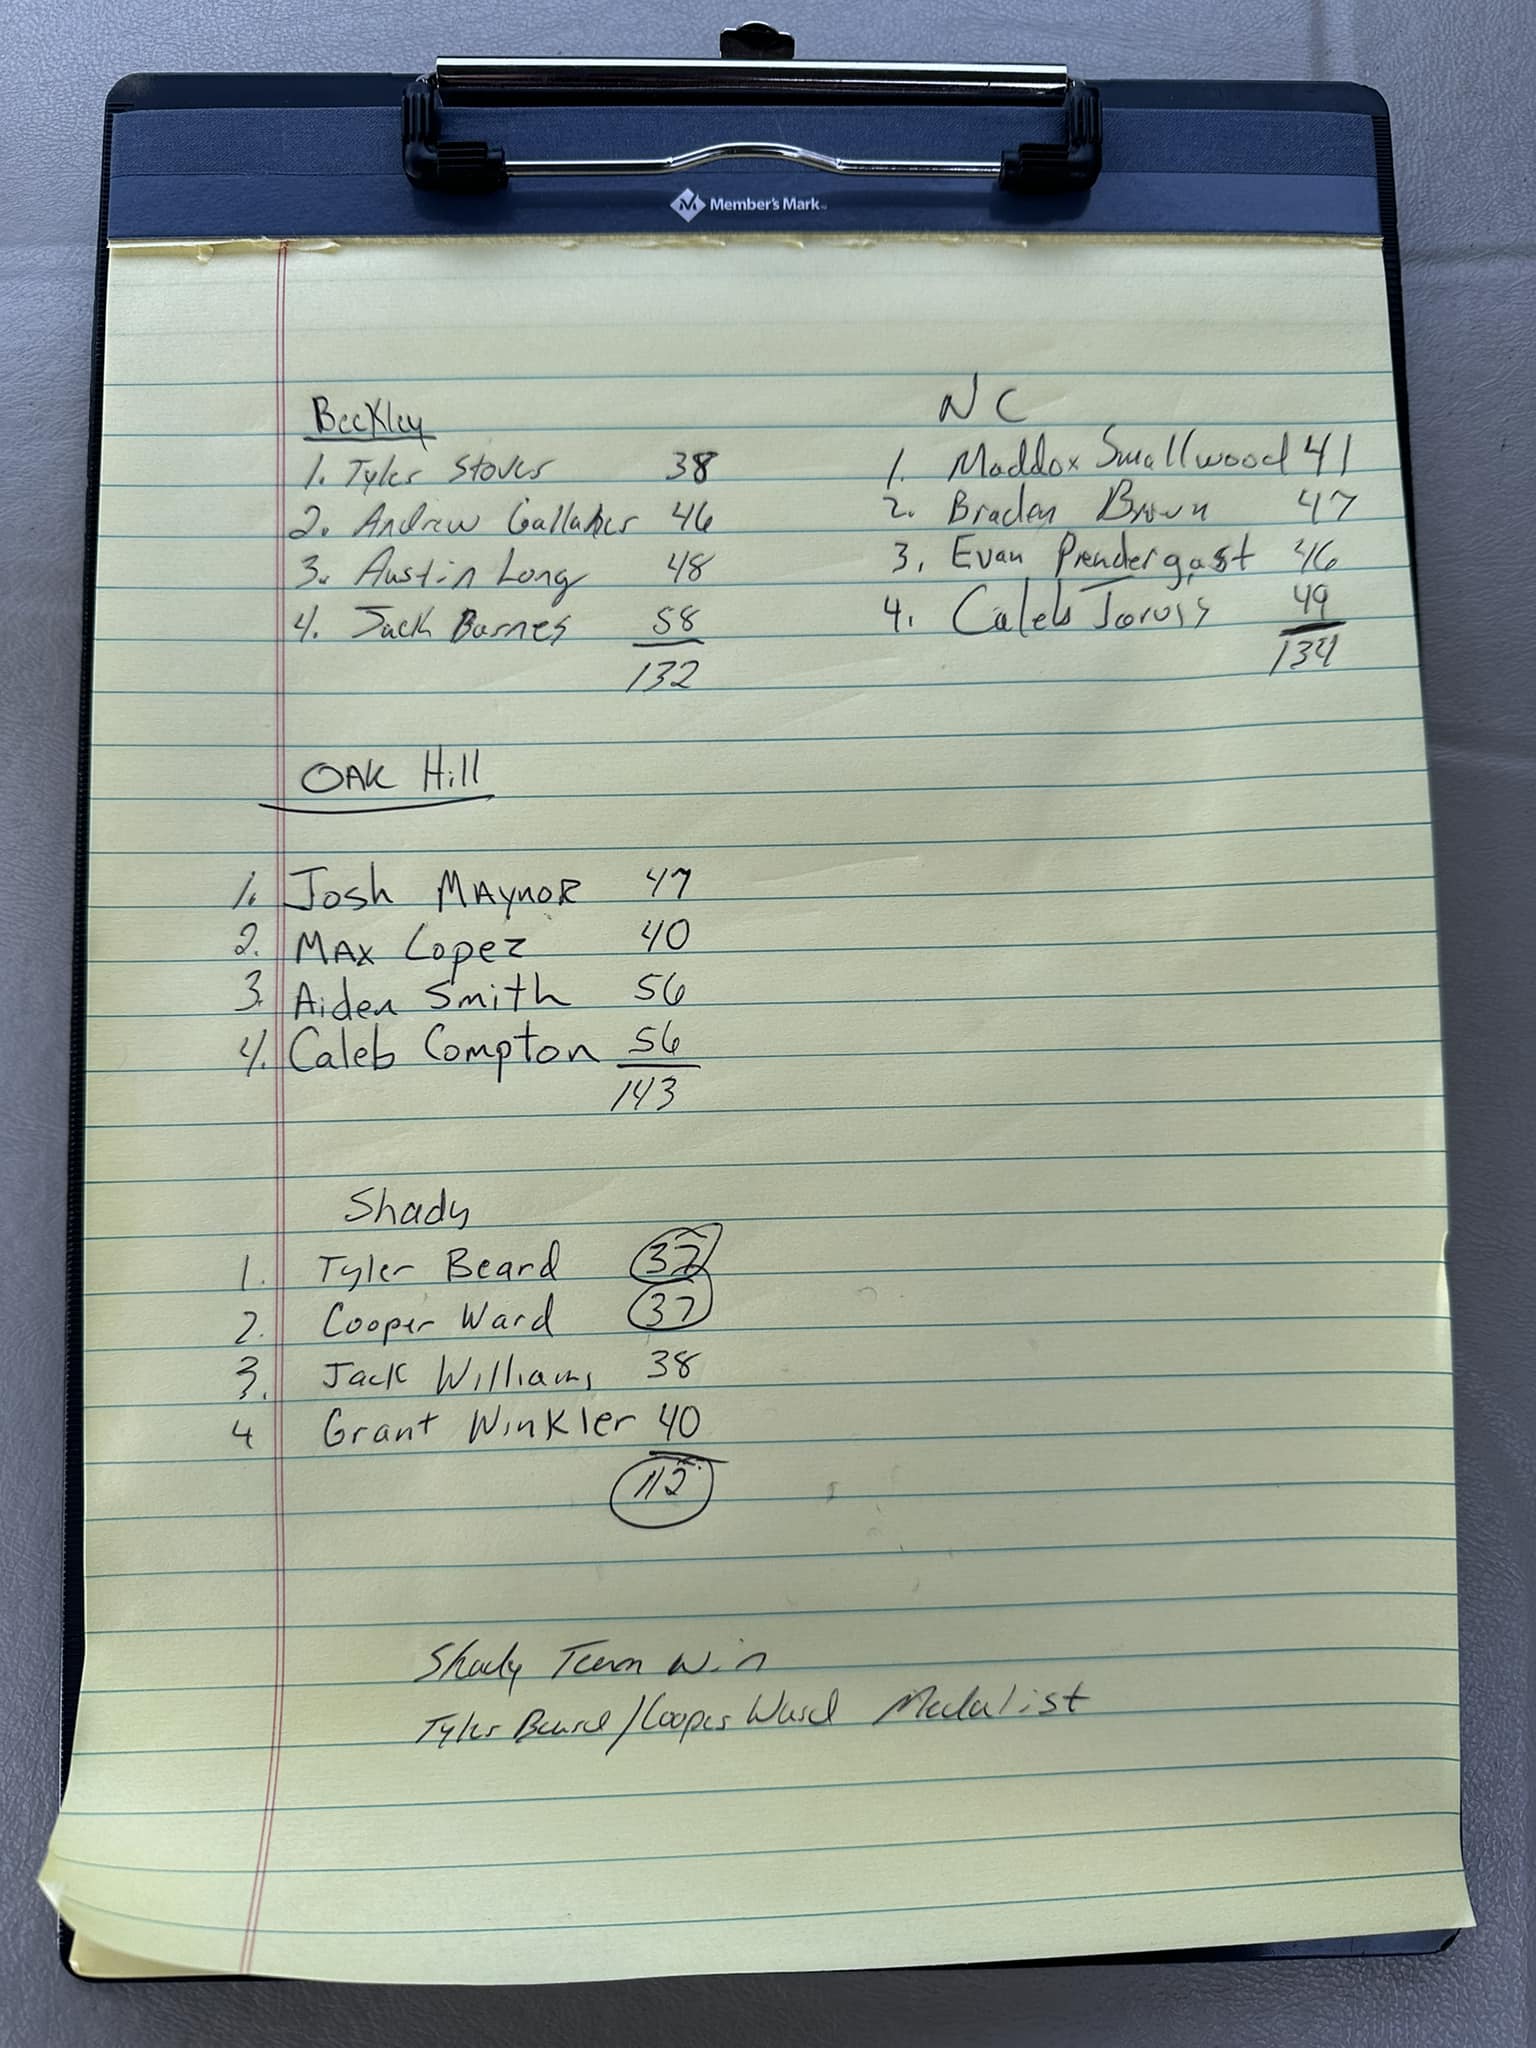 Member's Mark
Beckley
1. Tyler Stover 38
2. Andrew Gallaher 46
3. Austin Long 48
4. Jack Barnes 58
132
NC
1. Maddox Smallwood 41
2. Braden Brown 47
3. Evan Prendergast 46
4. Caleb Jarvis 49
134
OAK Hill
1. Josh MAynoR 47
2. MAx Lopez 40
3. Aiden Smith 56
4. Caleb Compton 56
143
Shady
1. Tyler Beard 37
2. Cooper Ward 37
3. Jack Williams 38
4 Grant Winkler 40
112
Shady Team Win
Tyler Beard/Cooper Ward Medalist